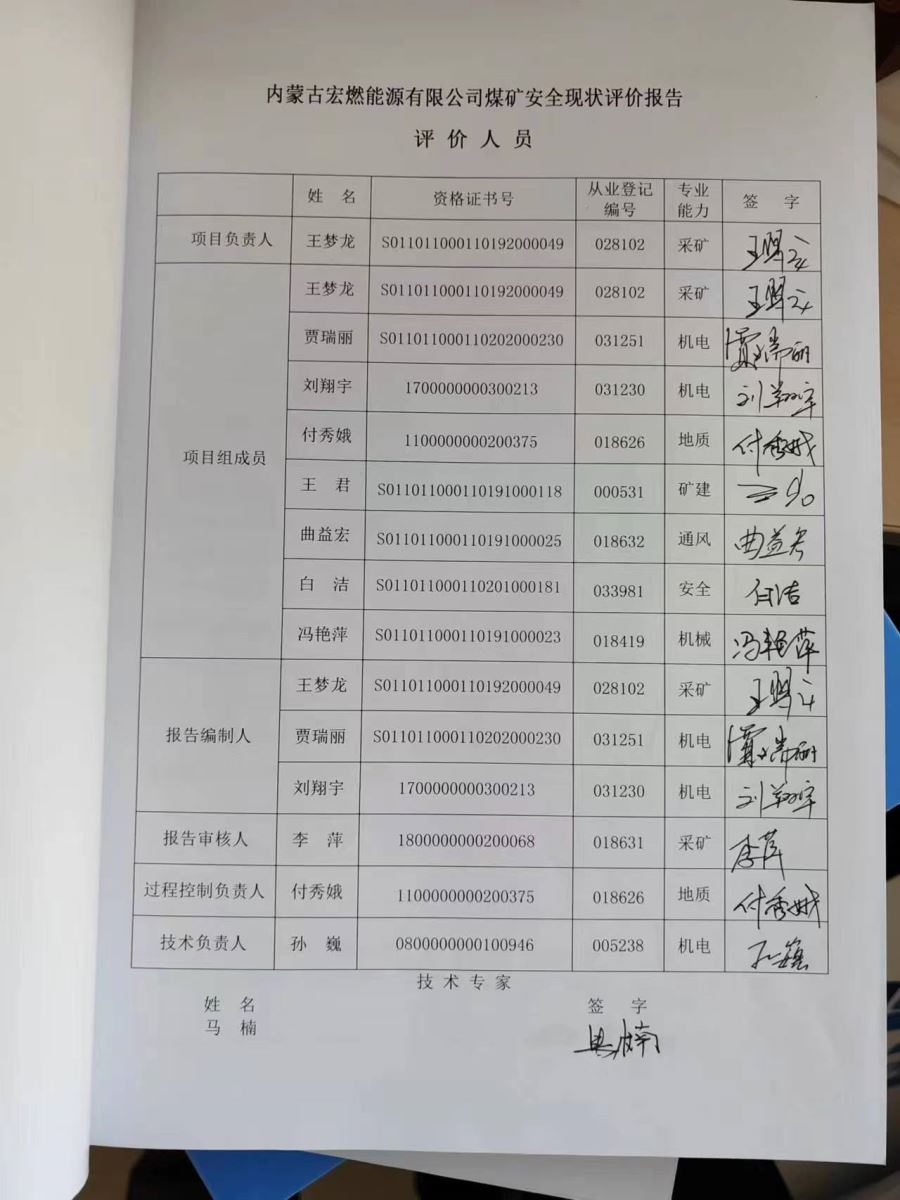 内蒙古宏燃能源有限公司煤矿安全现状评价报告
评价人员
姓 名 资格证书号 从业登记编号 专业能力 签 字
项目负责人 王梦龙 S011011000110192000049 028102 采矿
项目组成员 王梦龙 S011011000110192000049 028102 采矿
贾瑞丽 S011011000110202000230 031251 机电 贾瑞丽
刘翔宇 1700000000300213 031230 机电 刘翔宇
付秀娥 1100000000200375 018626 地质 付秀娥
王 君 S011011000110191000118 000531 矿建
曲益宏 S011011000110191000025 018632 通风 曲益宏
白 洁 S011011000110201000181 033981 安全 白洁
冯艳萍 S011011000110191000023 018419 机械 冯艳萍
报告编制人 王梦龙 S011011000110192000049 028102 采矿
贾瑞丽 S011011000110202000230 031251 机电 贾瑞丽
刘翔宇 1700000000300213 031230 机电 刘翔宇
报告审核人 李 萍 1800000000200068 018631 采矿 李萍
过程控制负责人 付秀娥 1100000000200375 018626 地质 付秀娥
技术负责人 孙 巍 0800000000100946 005238 机电 孙巍
技术专家
姓 名 签 字
马 楠 马楠